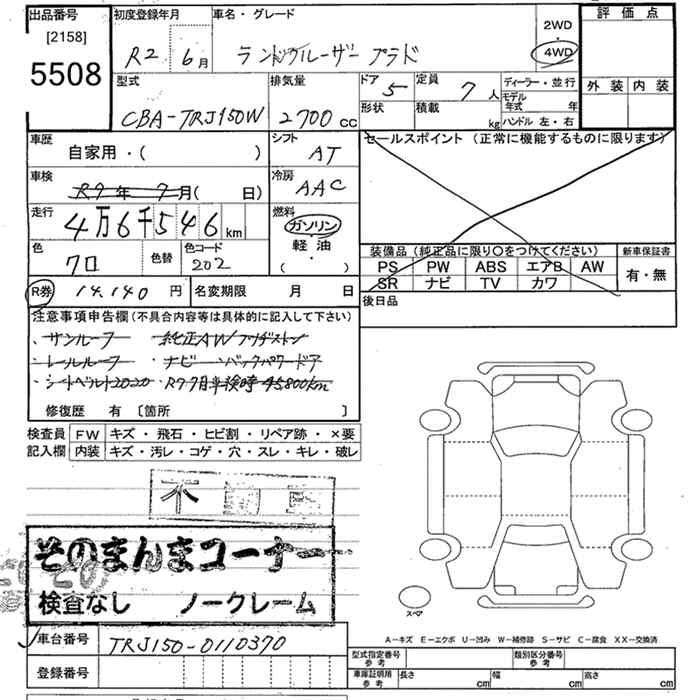 出品番号 初度登録年月 車名・グレード 評価点
[2158]
5508
R2 6月 ランドクルーザー プラド 2WD
・
4WD
外装 内装
型式 排気量 ドア 定員 ディーラー・並行
CBA-TRJ150W 2700cc 5 7人 モデル年式 年
形状 積載 kg ハンドル 左・右
車歴 シフト セールスポイント (正常に機能するものに限ります)
自家用・( ) AT
車検 冷房
R7年7月( 日) AAC
走行 燃料
4万6千546km ガソリン
・
軽油
( )
色 色替 色コード
クロ 202
装備品(純正品に限り〇をつけてください) 新車保証書
PS PW ABS エアB AW 有・無
SR ナビ TV カワ
R券 14,140円 名変期限 月 日 後日品
注意事項申告欄(不具合内容等は具体的に記入して下さい)
・サンルーフ 純正AWブリヂストン
・レールルーフ ナビ バックパワードア
・シートベルト2020 R7.7月車検時45800km
修復歴 有 〔箇所 〕
検査員 FW キズ・飛石・ヒビ割・リペア跡・×要
記入欄 内装 キズ・汚レ・コゲ・穴・スレ・キレ・破レ
そのまんまコーナー
検査なし ノークレーム
スペア
A−キズ E−エクボ U−凹み W−補修跡 S−サビ C−腐食 XX−交換済
車台番号 TRJ150-0110370
登録番号
型式指定番号 参考 類別区分番号 参考
車庫証明用 参考 長さ cm 幅 cm 高さ cm